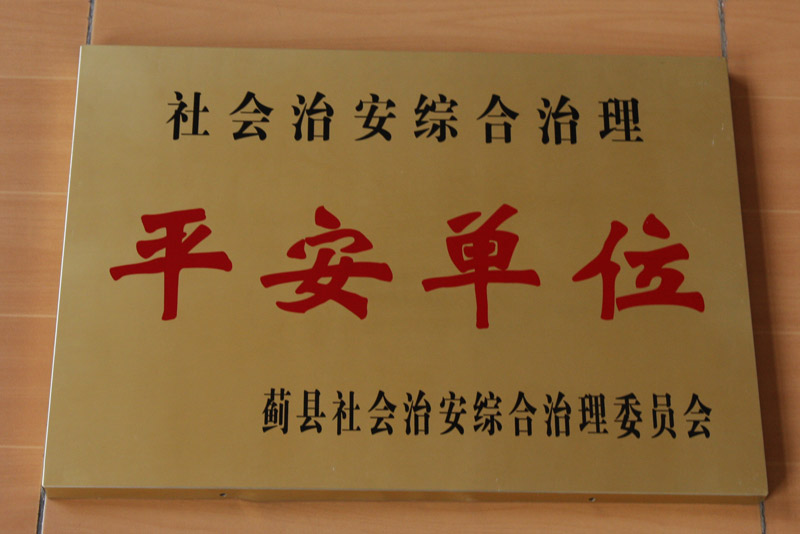 社会治安综合治理
平安单位
蓟县社会治安综合治理委员会